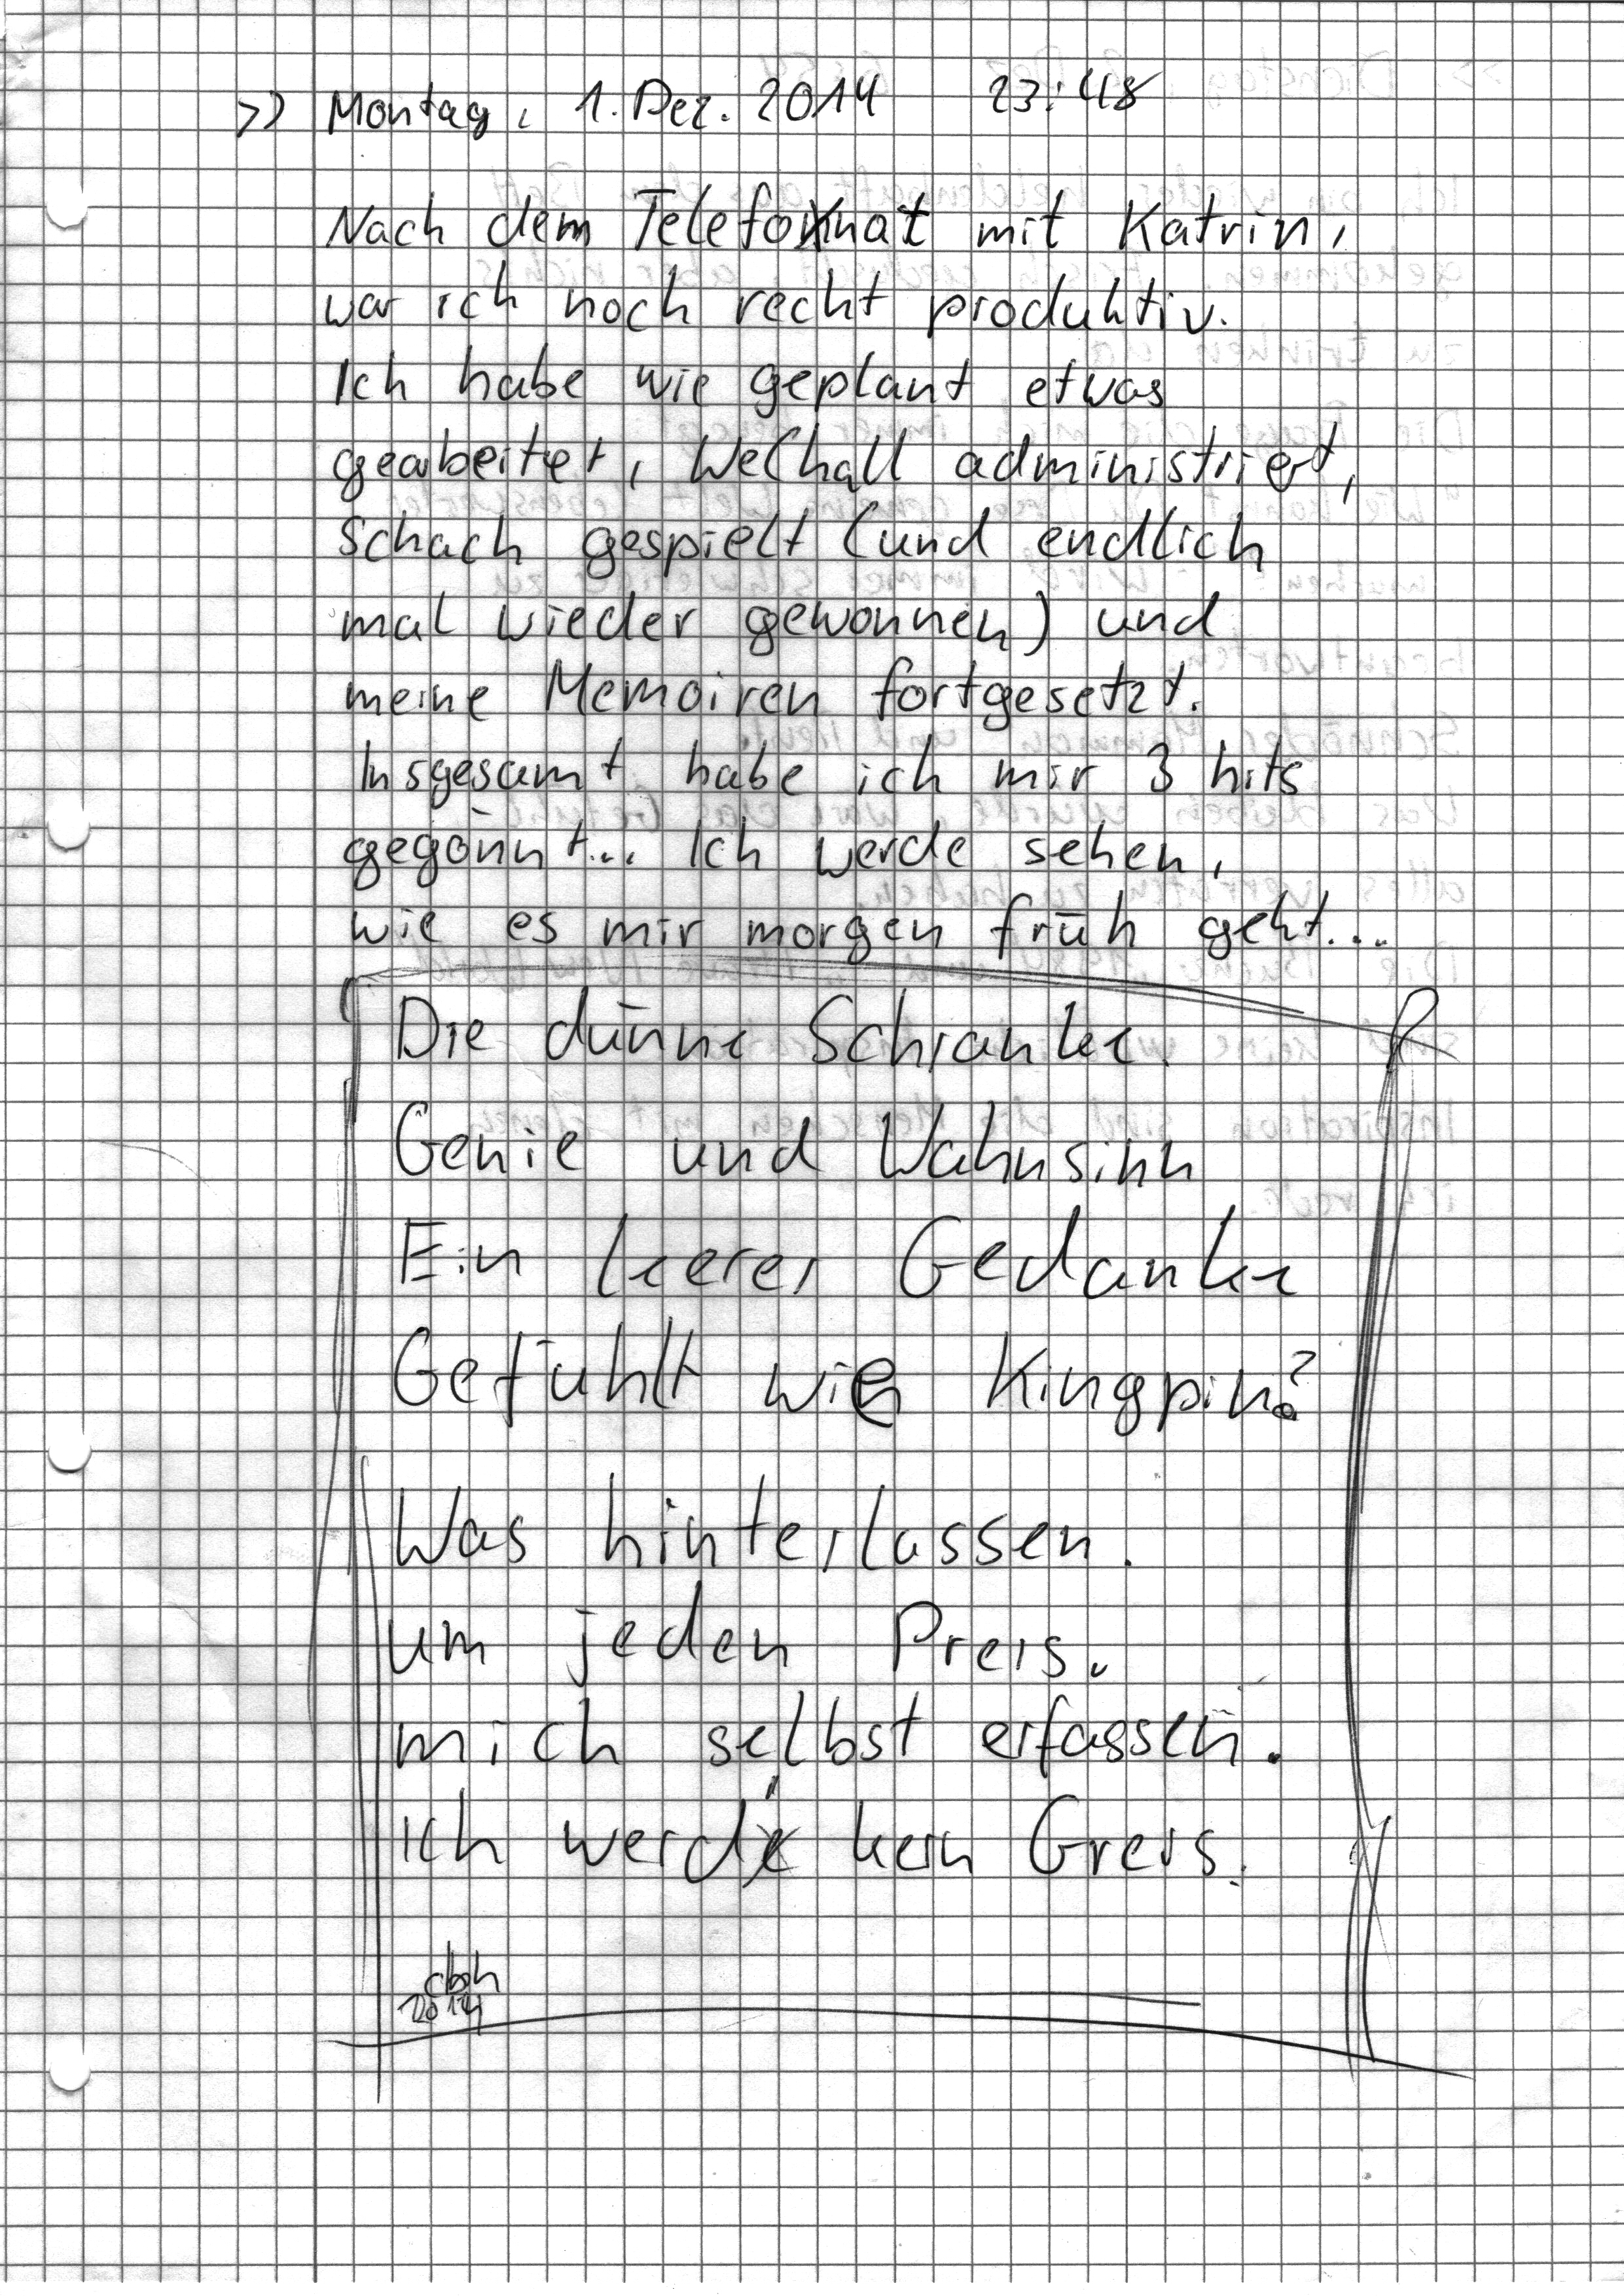 >> Montag, 1. Dez. 2014 23:48
Nach dem Telefonat mit Katrin,
war ich noch recht produktiv.
Ich habe wie geplant etwas
gearbeitet, WeChall administriert,
Schach gespielt (und endlich
mal wieder gewonnen) und
meine Memoiren fortgesetzt.
Insgesamt habe ich mir 3 hits
gegönnt... Ich werde sehen,
wie es mir morgen früh geht...
Die dünne Schranke.
Genie und Wahnsinn
Ein leerer Gedanke
Gefühlt wie Kingpin?
Was hinterlassen.
um jeden Preis.
mich selbst erfassen.
ich werd' kein Greis.
2014